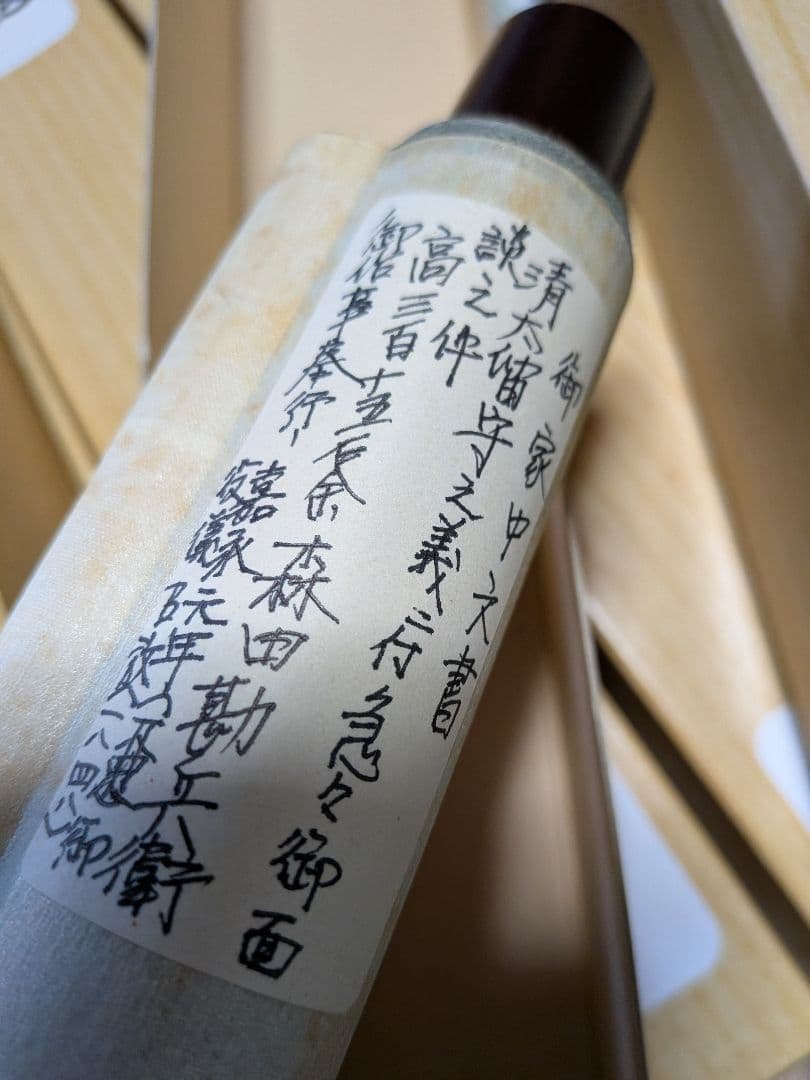 御家中文書
清太留守之義ニ付急々御面
談之件
高三百十五石余 森田勘兵衛
御作事奉行
嘉永元年
一八四八
御